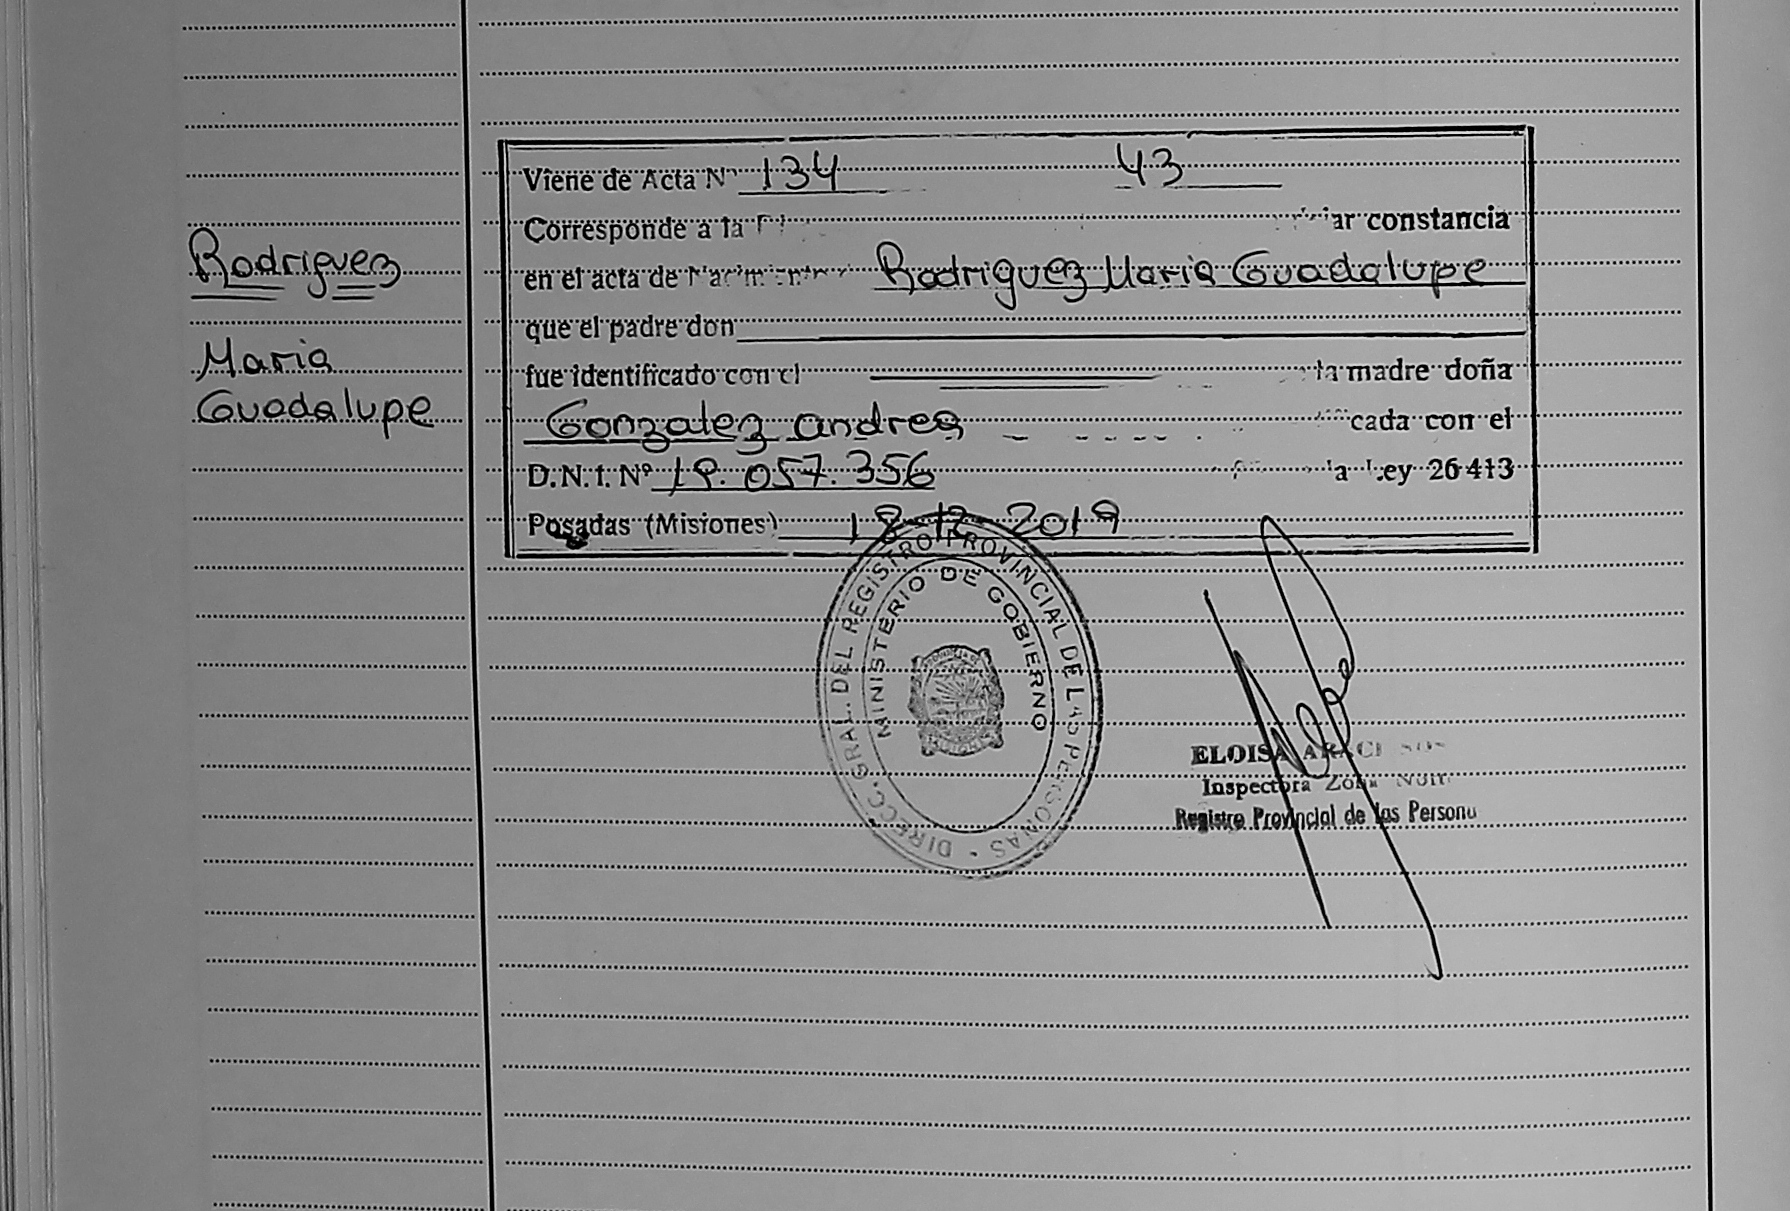 Rodriguez
Maria
Guadalupe
Viene de Acta N° 134 43
Corresponde a la ar constancia
en el acta de Rodriguez Maria Guadalupe
que el padre don
fue identificado con el la madre doña
Gonzalez andrea cada con el
D.N.I. Nº 19.057.356 la Ley 26413
Posadas (Misiones) 18-12-2019
DIRECC. GRAL. DEL REGISTRO PROVINCIAL DE LAS PERSONAS
MINISTERIO DE GOBIERNO
ELOISA
Inspectora Zona
Registro Provincial de las